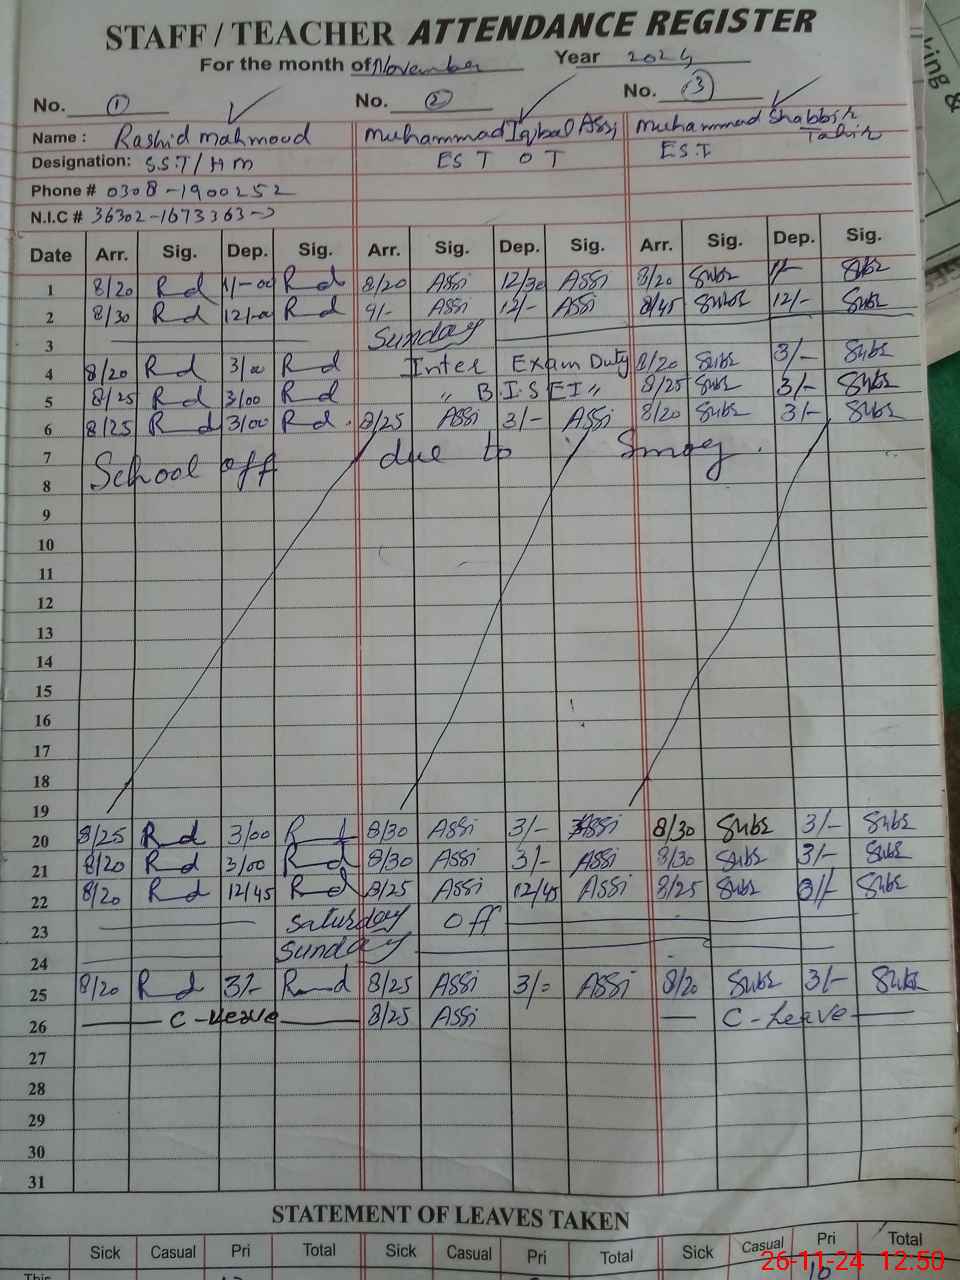 STAFF / TEACHER ATTENDANCE REGISTER
For the month of November Year 2024
No. 1 No. 2 No. 3
Name : Rashid Mahmood Muhammad Iqbal Assi Muhammad Shabbir
Tahir
Designation: S.S.T/HM EST OT EST
Phone # 0308-1900252
N.I.C # 36302-1673363-
Date Arr. Sig. Dep. Sig. Arr. Sig. Dep. Sig. Arr. Sig. Dep. Sig.
1 8/20 Rd 11-00 Rd 8/20 Assi 12/30 Assi 8/20
2 8/30 Rd 12/-00 Rd 9/- Assi 12/- Assi 8/45 12/-
3 Sunday
4 8/20 Rd 3/00 Rd Inter Exam Duty 8/20 3/-
5 8/25 Rd 3/00 Rd " B.I.S.E " 8/25 3/-
6 8/25 Rd 3/00 Rd. 8/25 Assi 3/- Assi 8/20 3/-
7 School off due to Smog.
8
9
10
11
12
13
14
15
16
17
18
19
20 8/25 Rd 3/00 Rd 8/30 Assi 3/- Assi 8/30 3/-
21 8/20 Rd 3/00 Rd 8/30 Assi 3/- Assi 8/30 3/-
22 8/20 Rd 12/45 Rd 8/25 Assi 12/45 Assi 8/25
23 Saturday off
24 Sunday
25 8/20 Rd 3/- Rd 8/25 Assi 3/= Assi 8/20 3/-
26 C-Leave 8/25 Assi C-Leave
27
28
29
30
31
STATEMENT OF LEAVES TAKEN
Sick Casual Pri Total Sick Casual Pri Total Sick Casual Pri Total
This 10
26-11-24 12:50